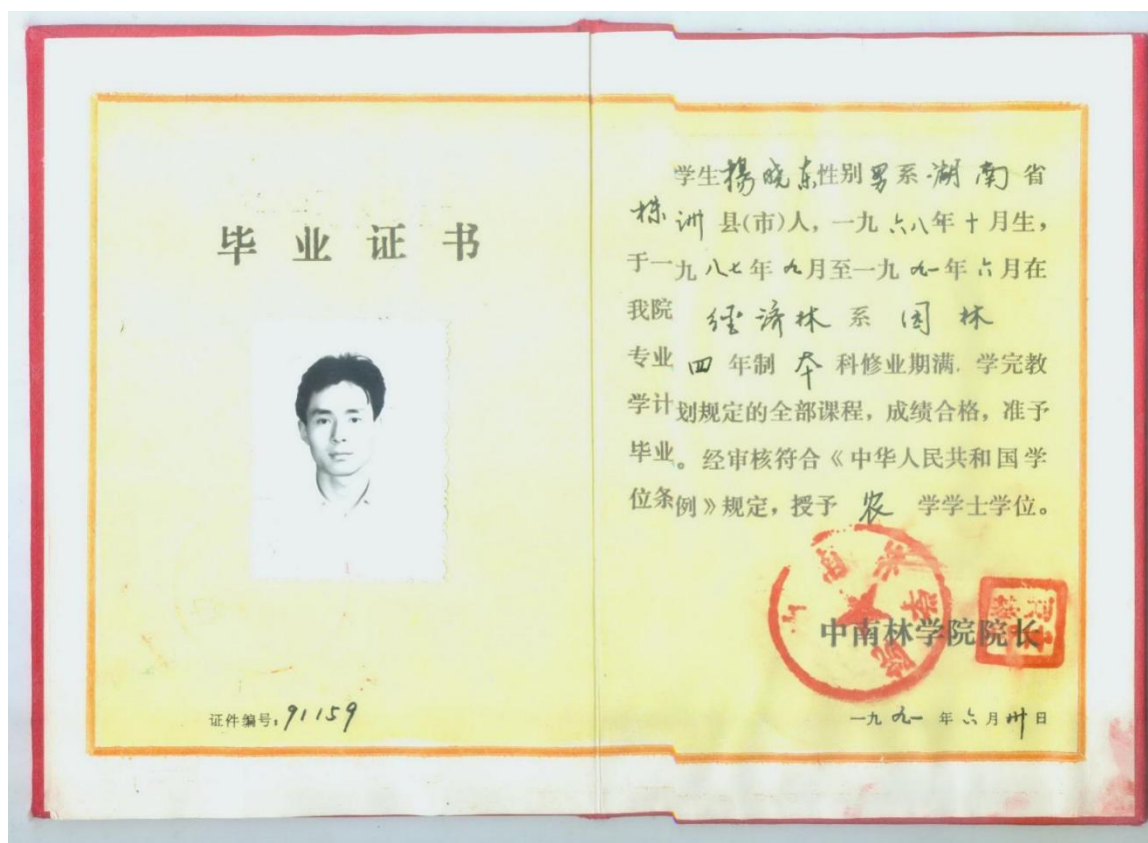 毕业证书
证件编号：91159
学生楊晓东性别男系湖南省
株洲县(市)人，一九六八年十月生，
于一九八七年九月至一九九一年六月在
我院 经济林 系 园林
专业 四 年制 本 科修业期满，学完教
学计划规定的全部课程，成绩合格，准予
毕业。经审核符合《中华人民共和国学
位条例》规定，授予 农 学学士学位。
中南林学院院长
一九九一年六月卅日
中南林学院